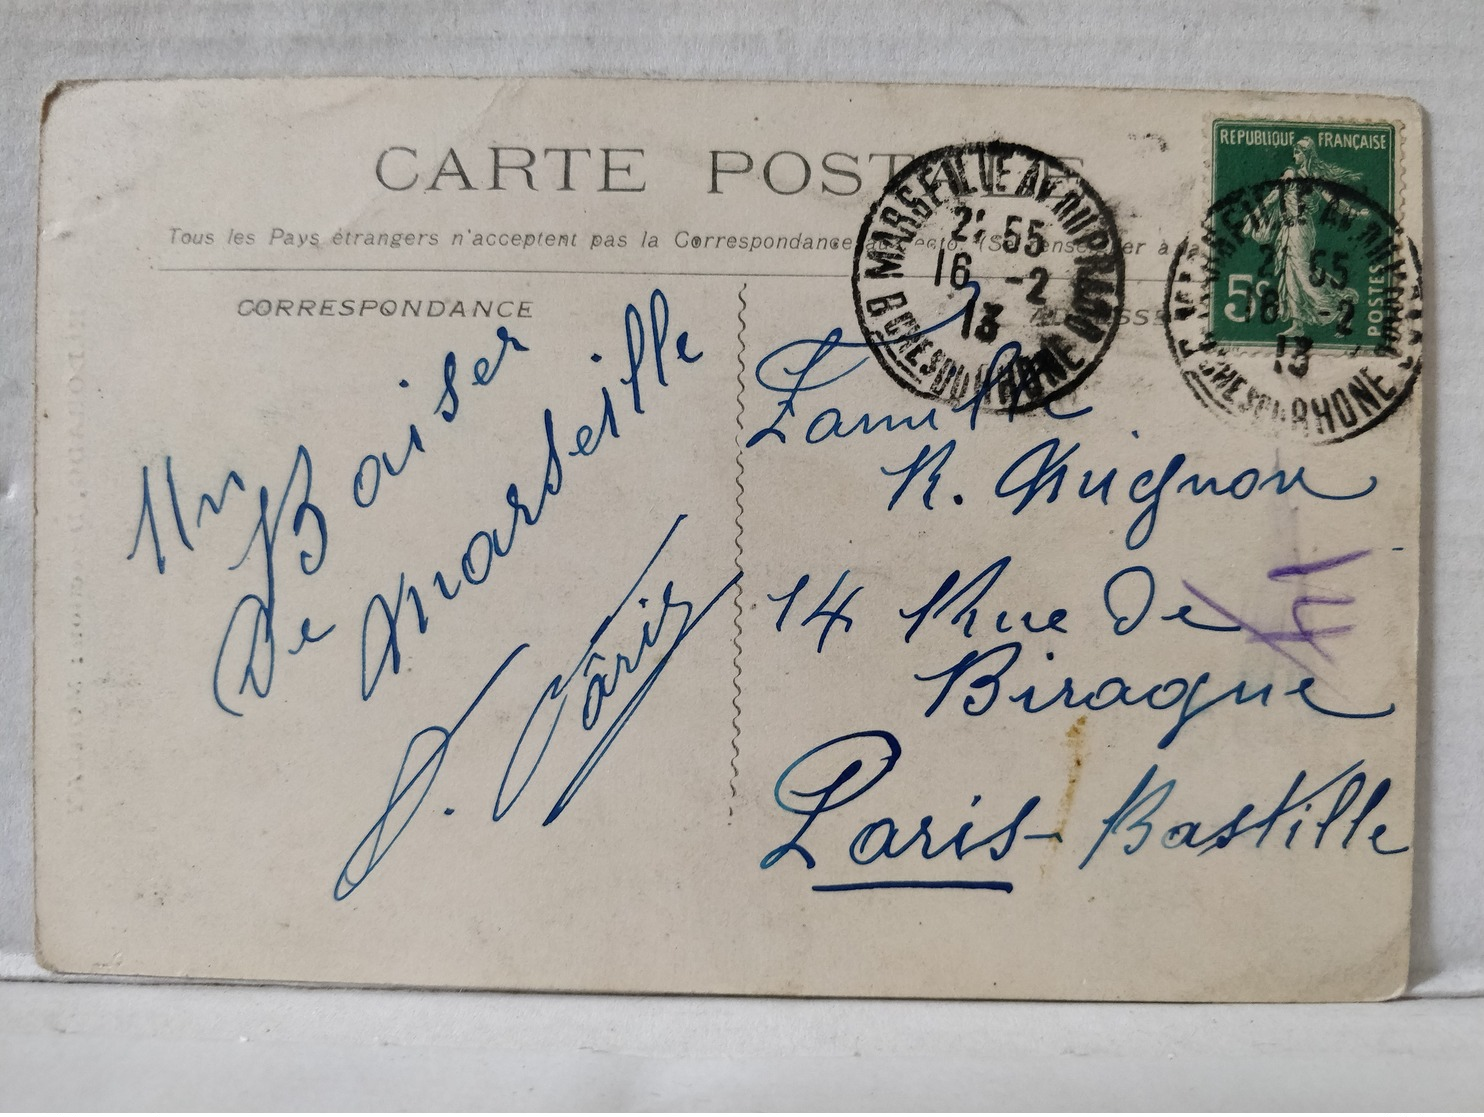 CARTE POSTALE
Tous les Pays étrangers n'acceptent pas la Correspondance au recto. (Se renseigner à la
CORRESPONDANCE
ADRESSE
REPUBLIQUE FRANÇAISE
5c
POSTES
MARSEILLE AV. DU PRADO
2' 55
16 -2
13
BCHES DU RHONE
2' 55
16 -2
13
CHES DU RHONE
Un Baiser
De Marseille
P. Pâris
Famille
R. Mignon
14 Rue De
Biragne
Paris-Bastille